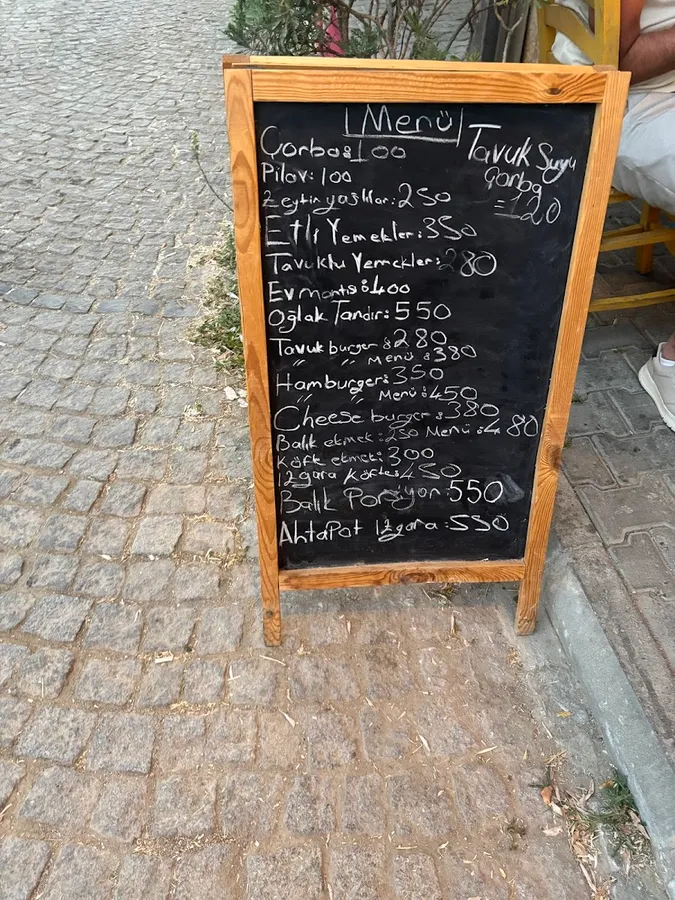 Menü
Çorba: 100
Tavuk Suyu
Çorba
=120
Pilav: 100
Zeytinyağlılar: 250
Etli Yemekler: 350
Tavuklu Yemekler: 280
Ev mantısı: 400
Oğlak Tandır: 550
Tavuk burger: 280
" " Menü: 380
Hamburger: 350
" " Menü: 450
Cheese burger: 380
Balık ekmek: 250 Menü: 480
Köfte ekmek: 300
Izgara Köfte: 450
Balık Porsiyon: 550
AhtaPot Izgara: 550